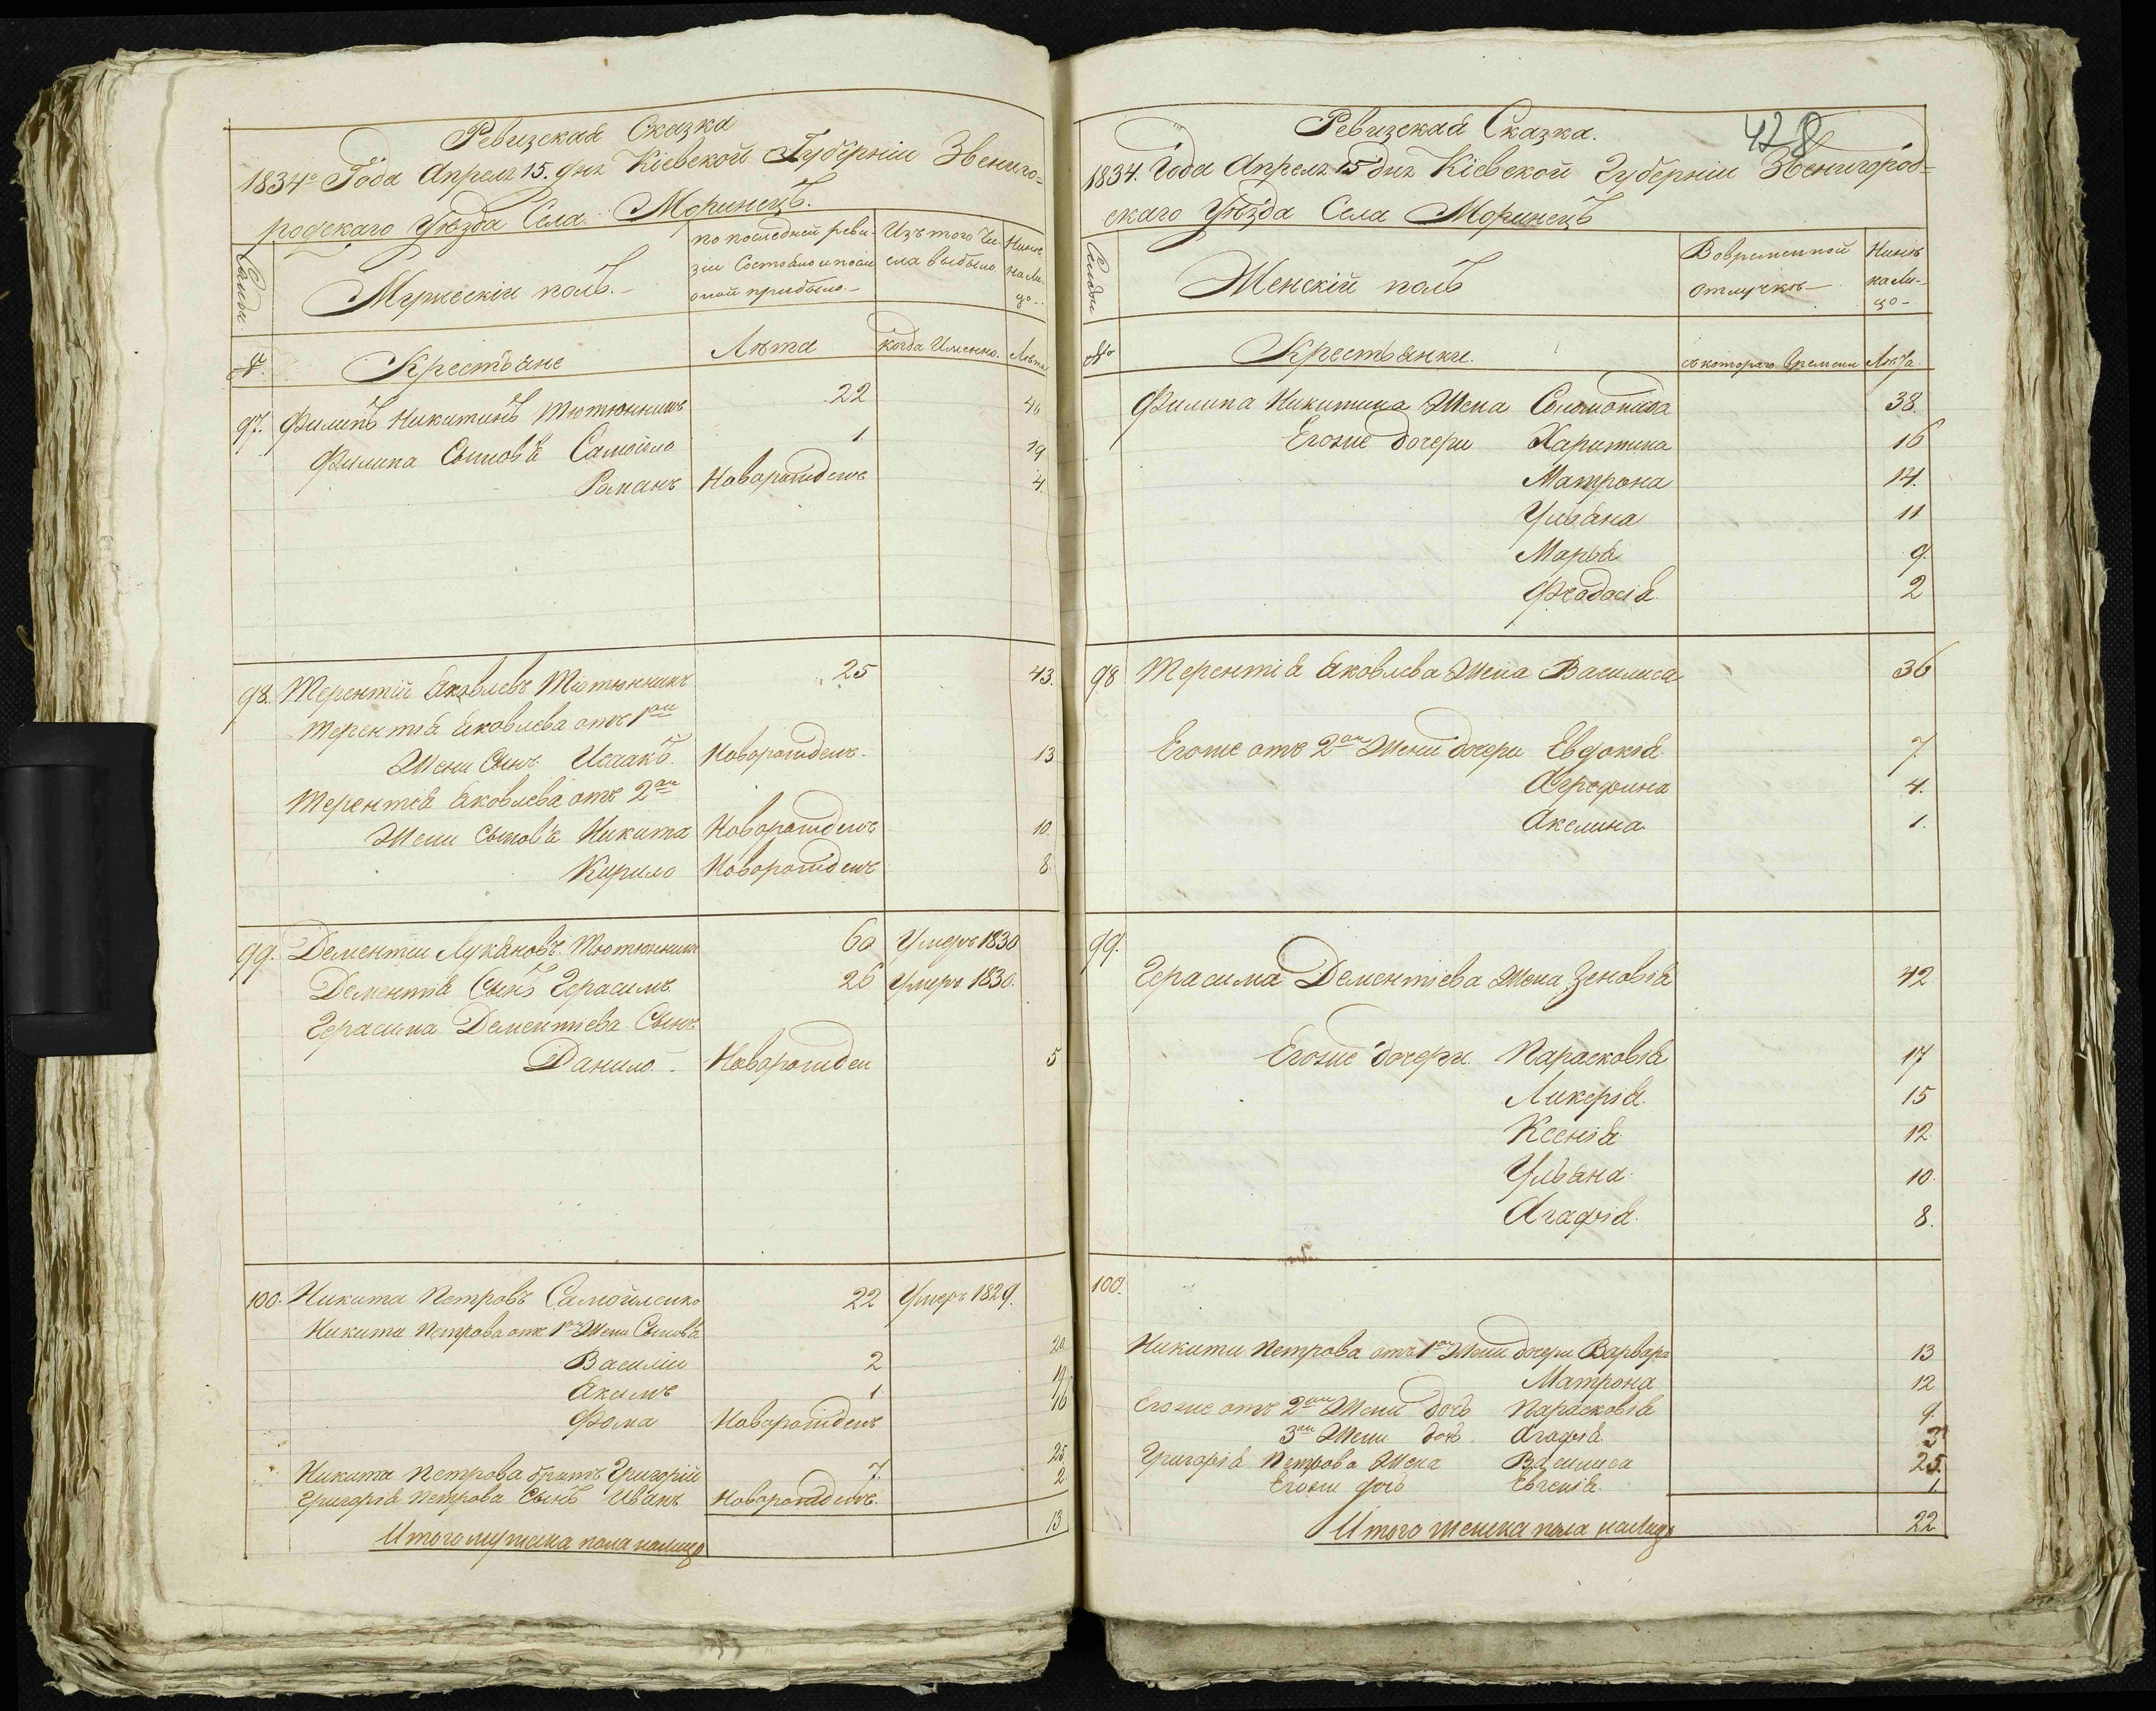 Ревизская Сказка
1834го Года Апреля 15. дня Кіевской Губерніи Звениго=
родскаго Уѣзда Села Моринецъ.
Семьи
Мужескій полъ.
по последней реви-
зіи Состояло и после
оной прибыло.
Изъ того Чи-
сла выбыло
Нынѣ
на Ли-
цо
№.
Крестьяне
Лѣта
когда Именно.
Лѣта
97. Филипъ Никитинъ Тютюнникъ 22 40
Филипа Сыновья Самойло 1 19
Романъ Новорожденъ 4.
98. Терентій Яковлевъ Тютюнникъ 25 43.
Терентія Яковлева отъ 1ой
Жени Сынъ Исаакъ. Новорожденъ. 13
Терентія Яковлева отъ 2ой
Жени сыновья Никита Новорожденъ 10.
Кирило Новорожденъ 8.
99. Дементіи Лукяновъ Тютюнникъ 60 Умеръ 1830
Дементія Сынъ Герасимъ 26 Умеръ 1830.
Герасима Дементіева Сынъ
Данило Новорожден 5
100. Никита Петровъ Самойленко 22 Умеръ 1829.
Никити Петрова отъ 1ой Жени Сыновья
Василіи 2 20
Якимъ 1 19
Фома Новорожденъ 16
Никита Петрова братъ Григорій 7. 25
Григорія Петрова Сынъ Иванъ Новорожденъ. 2.
Итого мужска пола налицо 13
428
Ревизская Сказка.
1834. Года Апреля 15 дня Кіевской Губерніи Звенигород=
скаго Уѣзда Села Моринецъ
Семьи
Женскій полъ
Вовременной
отлучкѣ
Нынѣ
на Ли-
цо
№
Крестьянки.
съ котораго времени
Лѣта
Филипа Никитина Жена Соломонида 38.
Егоже дочери Харитина 16
Матрона 14.
Ульяна 11
Марья 9.
Феодосія. 2
98 Терентія Яковлева Жена Василиса 36
Егоже отъ 2ой Жени дочери Евдокія. 7
Агрофина 4.
Акелина 1.
99.
Герасима Дементіева Жена Зеновія 42
Егоже дочери. Парасковія 17
Ликерія. 15
Ксенія 12.
Ульяна. 10.
Агафія. 8.
100.
Никити Петрова отъ 1ой Жени дочери Варвара 13
Матрона 12
Егоже отъ 2ой Жени дочь Парасковія 9.
3ей Жени дочь Агафія. 3
Григорія Петрова Жена Василиса 25.
Егоже дочь Евгенія. 1.
Итого женска пола налицо 22